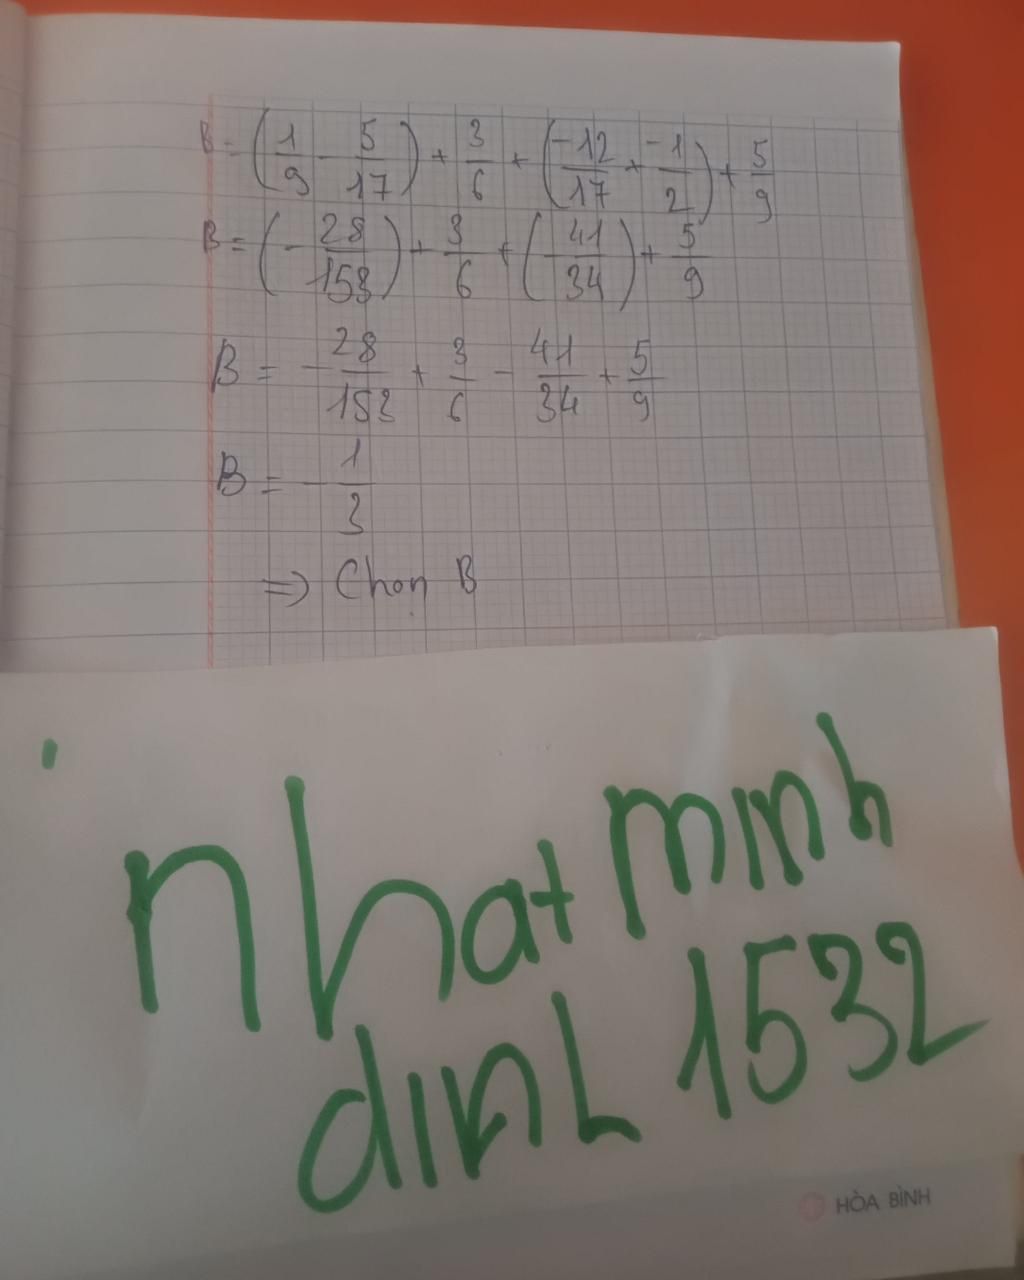 B = (1/9 - 5/17) + 3/6 + (-12/17 + -1/2) + 5/9
B = (- 28/153) + 3/6 + (- 41/34) + 5/9
B = - 28/153 + 3/6 - 41/34 + 5/9
B = - 1/3
=> Chọn B
nhat minh
dinh 1532
HÒA BÌNH